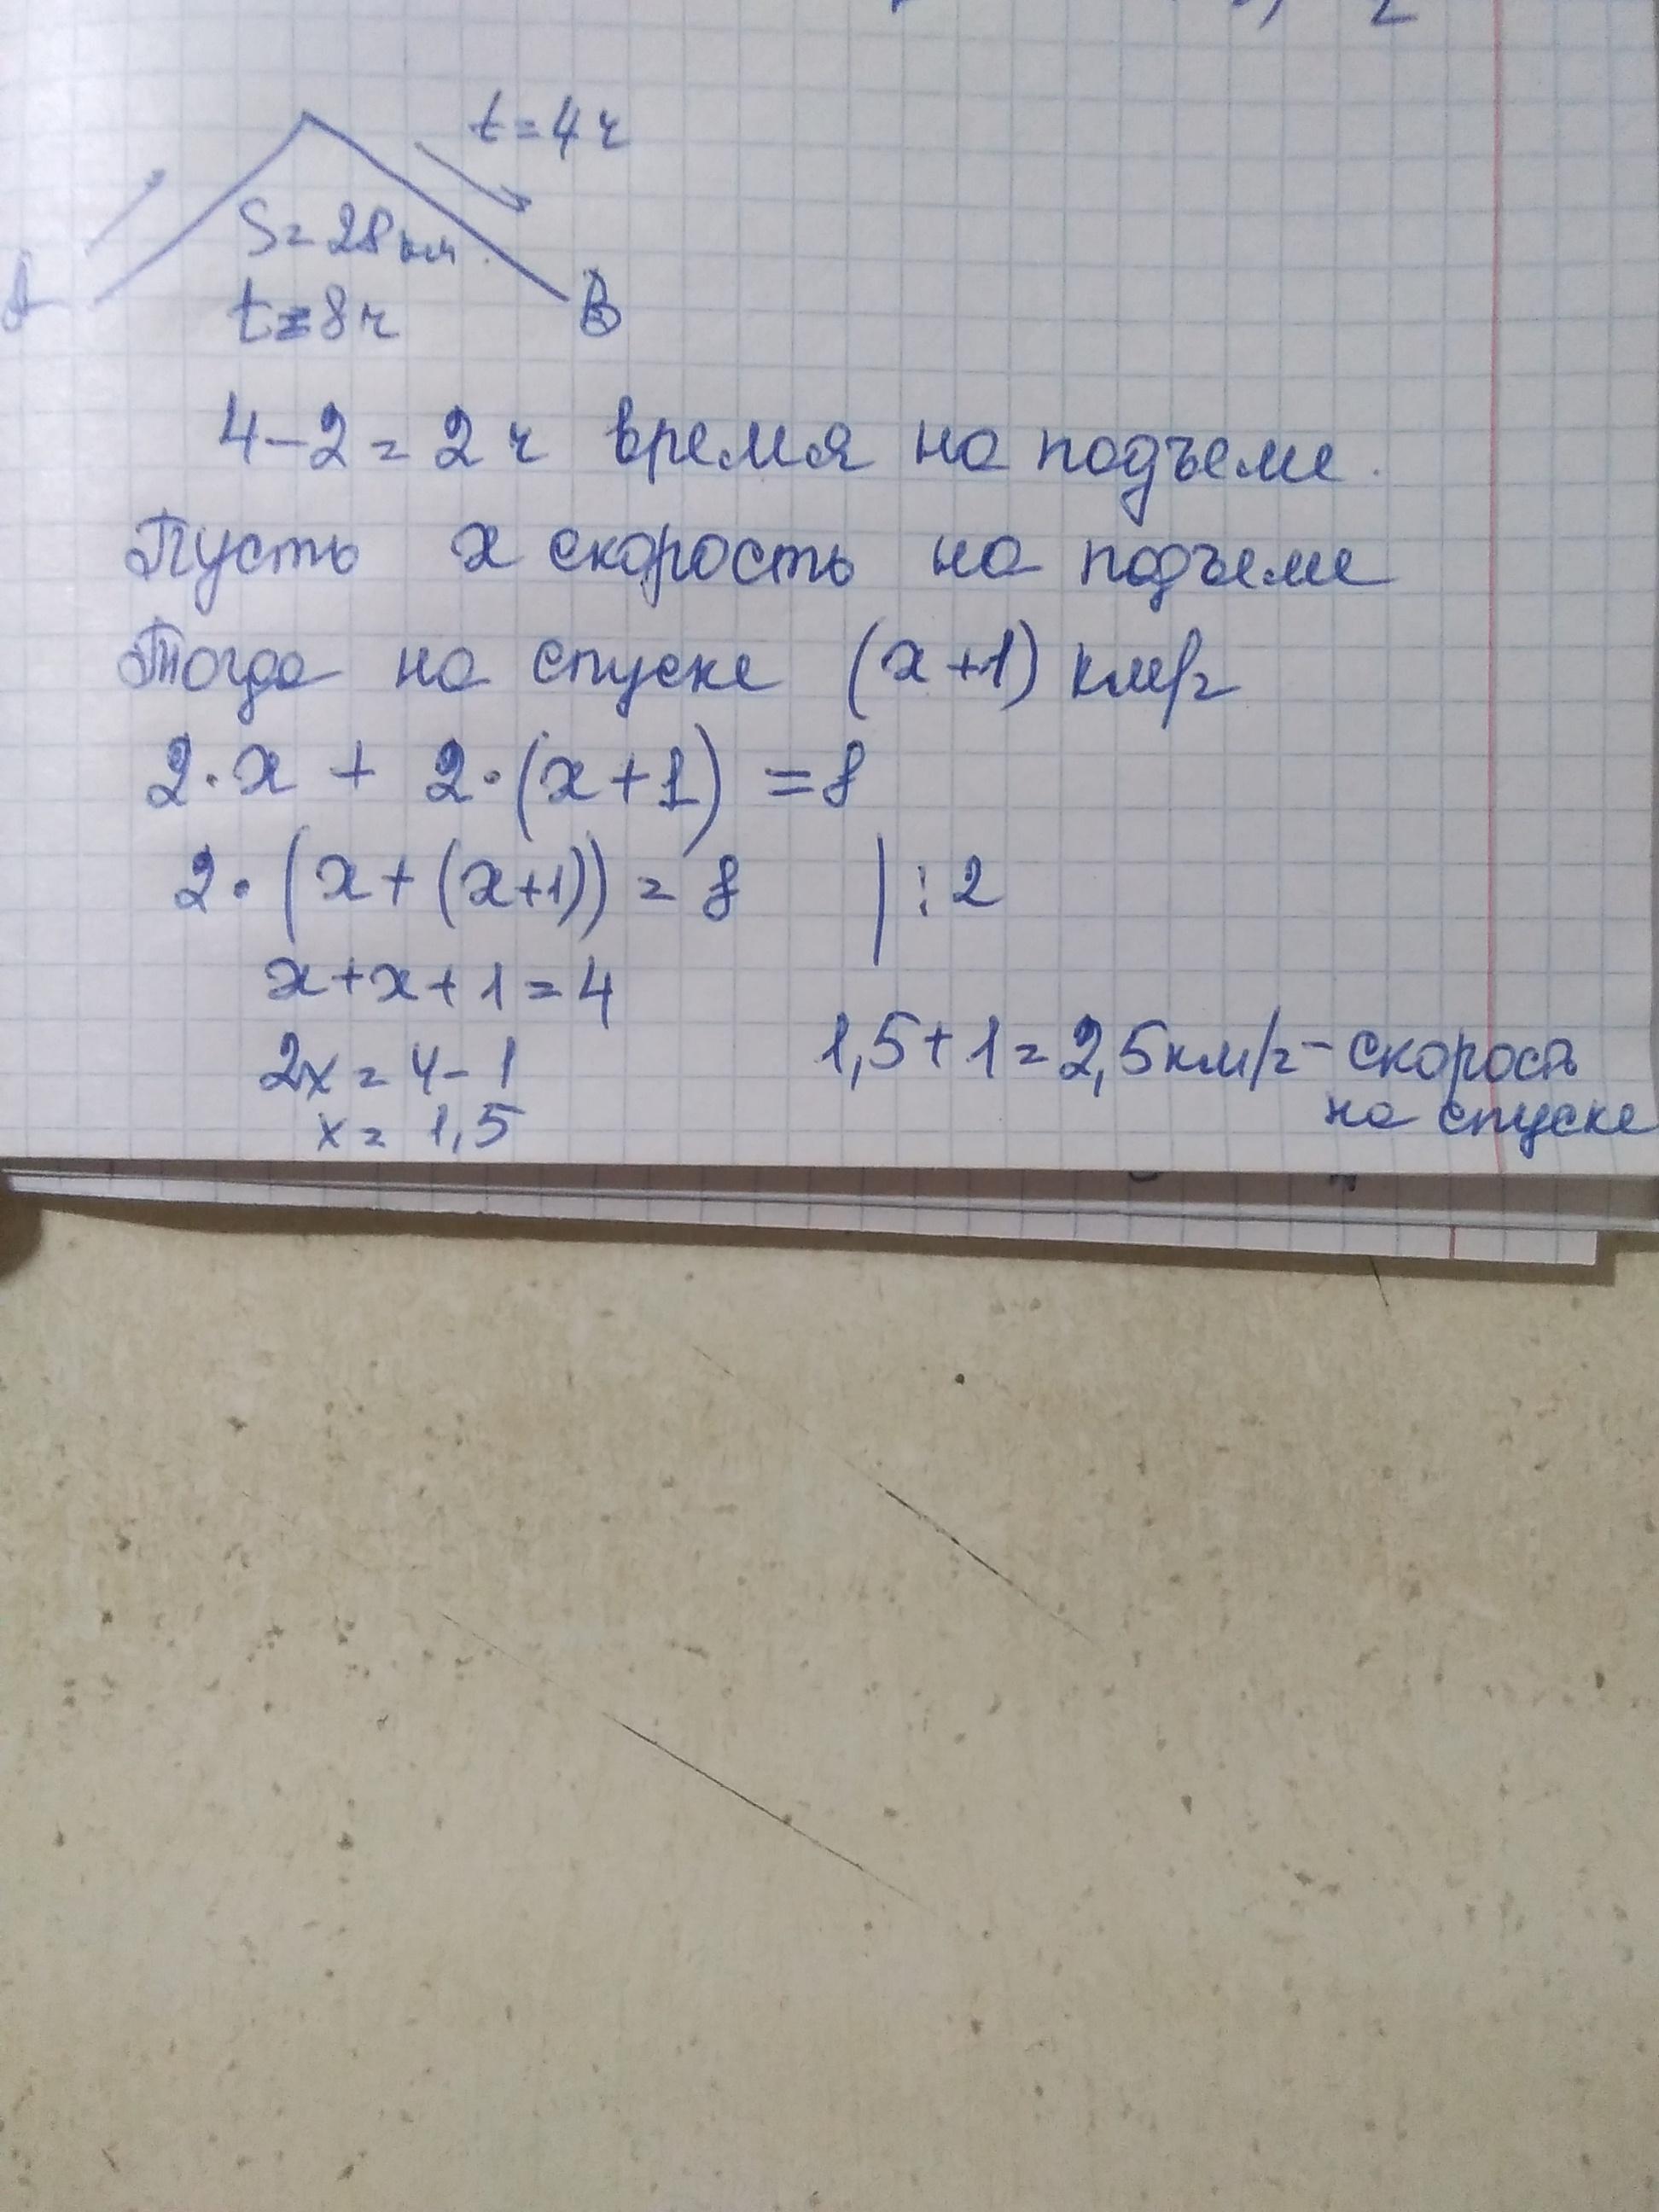 t=4ч
S=28км
t=8ч
А
В
4-2=2ч время на подъеме.
Пусть х скорость на подъеме
Тогда на спуске (х+1) км/ч
2·х + 2·(х+1) =8
2·(х+(х+1))=8 |:2
х+х+1=4
2х=4-1
х=1,5
1,5+1=2,5км/ч-скорость
на спуске